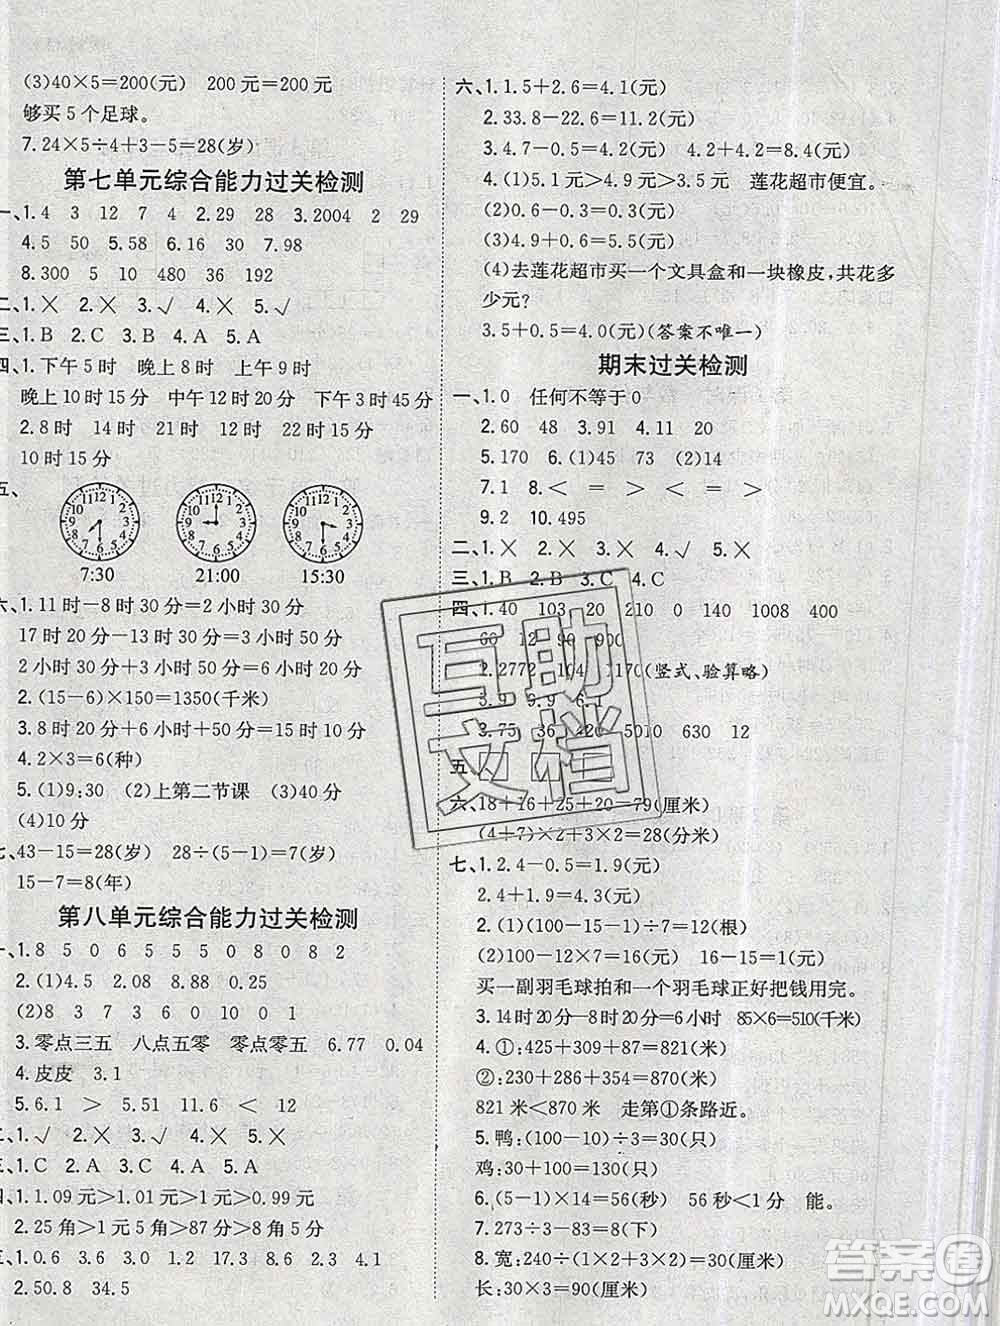 (3)40×5=200(元) 200元=200元
够买5个足球。
7.24×5÷4+3-5=28(岁)
第七单元综合能力过关检测
一、1.4 3 12 7 4 2.29 28 3.2004 2 29
4.5 50 5.58 6.16 30 7.98
8.300 5 10 480 36 192
二、1.× 2.× 3.√ 4.× 5.√
三、1.B 2.C 3.B 4.A 5.A
四、1.下午5时 晚上8时 上午9时
晚上10时15分 中午12时20分 下午3时45分
2.8时 14时 21时 19时20分 7时40分
10时15分
五、
7:30 21:00 15:30
六、1.11时-8时30分=2小时30分
17时20分-14时50分=2小时30分
2小时30分+2小时30分=5小时
2.(15-6)×150=1350(千米)
3.8时20分+1小时50分=10时10分
4.2×3=6(种)
5.(1)9:30 (2)上第二节课 (3)40分
(4)10分
七、43-15=28(岁) 28÷(5-1)=7(岁)
15-7=8(年)
第八单元综合能力过关检测
一、1.8 5 0 6 5 5 5 0 8 0 8 2
2.(1)4.15 2.08 0.89 0.51
(2)8 3 7 3 6 0 10 0 1
3.零点三五 八点五零 零点零五 6.77 0.04
4.皮皮 3.1
5.6.1 > 5.51 11.6 < 12
二、1.√ 2.× 3.√ 4.× 5.×
三、1.C 2.A 3.A 4.C 5.B
四、1.1.09元>1.01元>1元>0.99元
2.25角>1元5角>87分>8角5分
三、1.0.6 3.6 3.0 1.2 17.3 12.6 3.4
2.50.8 34.5
六、1.1.5+2.6=4.1(元)
2.33.8-22.6=11.2(元)
3.4.7-0.5=4.2(元) 4.2+4.2=8.4(元)
4.(1)5.1元>4.9元>3.5元 莲花超市便宜。
(2)0.6-0.3=0.3(元)
(3)4.9-0.5=4.4(元)
(4)去莲花超市买一个文具盒和一块橡皮,共花多
少元?
3.5+0.5=4.0(元)(答案不唯一)
期末过关检测
一、1.0 任何不等于0
2.60 48 3.91 4.11 20
5.170 6.(1)45 73 (2)14
7.1 8.< = < = >
9.2 10.495
二、1.× 2.× 3.× 4.√ 5.×
三、1.B 2.B 3.C 4.C
四、1.40 103 20 210 0 140 1008 400
60 12 90 900
2.2772 104 1170(竖式、验算略)
3.9 9.9 6.1
3.75 420 5010 630 12
五、
六、18+16+25+20=79(厘米)
(4+7)×2+3×2=28(分米)
七、1.2.4-0.5=1.9(元)
2.4+1.9=4.3(元)
2.(1)(100-16)÷7=12(根)
(2)100-12×7=16(元) 16-15=1(元)
买一副羽毛球拍和一个羽毛球正好把钱用完。
3.14时20分-8时20分=6小时 85×6=510(千米)
4.①:425+309+87=821(米)
②:230+286+354=870(米)
821米<870米 走第①条路近。
5.鸭:(100-10)÷3=30(只)
鸡:30+100=130(只)
6.(5-1)×14=56(秒) 56秒<1分 能。
7.273÷3-83=8(下)
8.宽:240÷(1×2+3×2)=30(厘米)
长:30×3=90(厘米)
互助
文档
答案圈
MXQE.COM